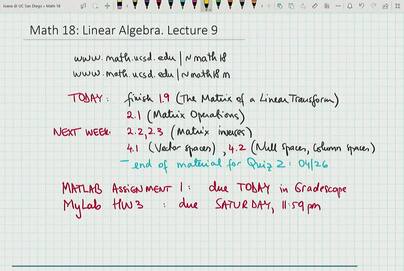 Ioana @ UC San Diego > Math 18
Math 18: Linear Algebra. Lecture 9
www.math.ucsd.edu/~math18
www.math.ucsd.edu/~math18m
TODAY: finish 1.9 (The Matrix of a Linear Transform)
2.1 (Matrix Operations)
NEXT WEEK: 2.2, 2.3 (Matrix inverses)
4.1 (Vector spaces), 4.2 (Null spaces, Column spaces)
– end of material for Quiz 2: 04/26
MATLAB ASSIGNMENT 1: due TODAY in Gradescope
MyLab HW3: due SATURDAY, 11:59pm